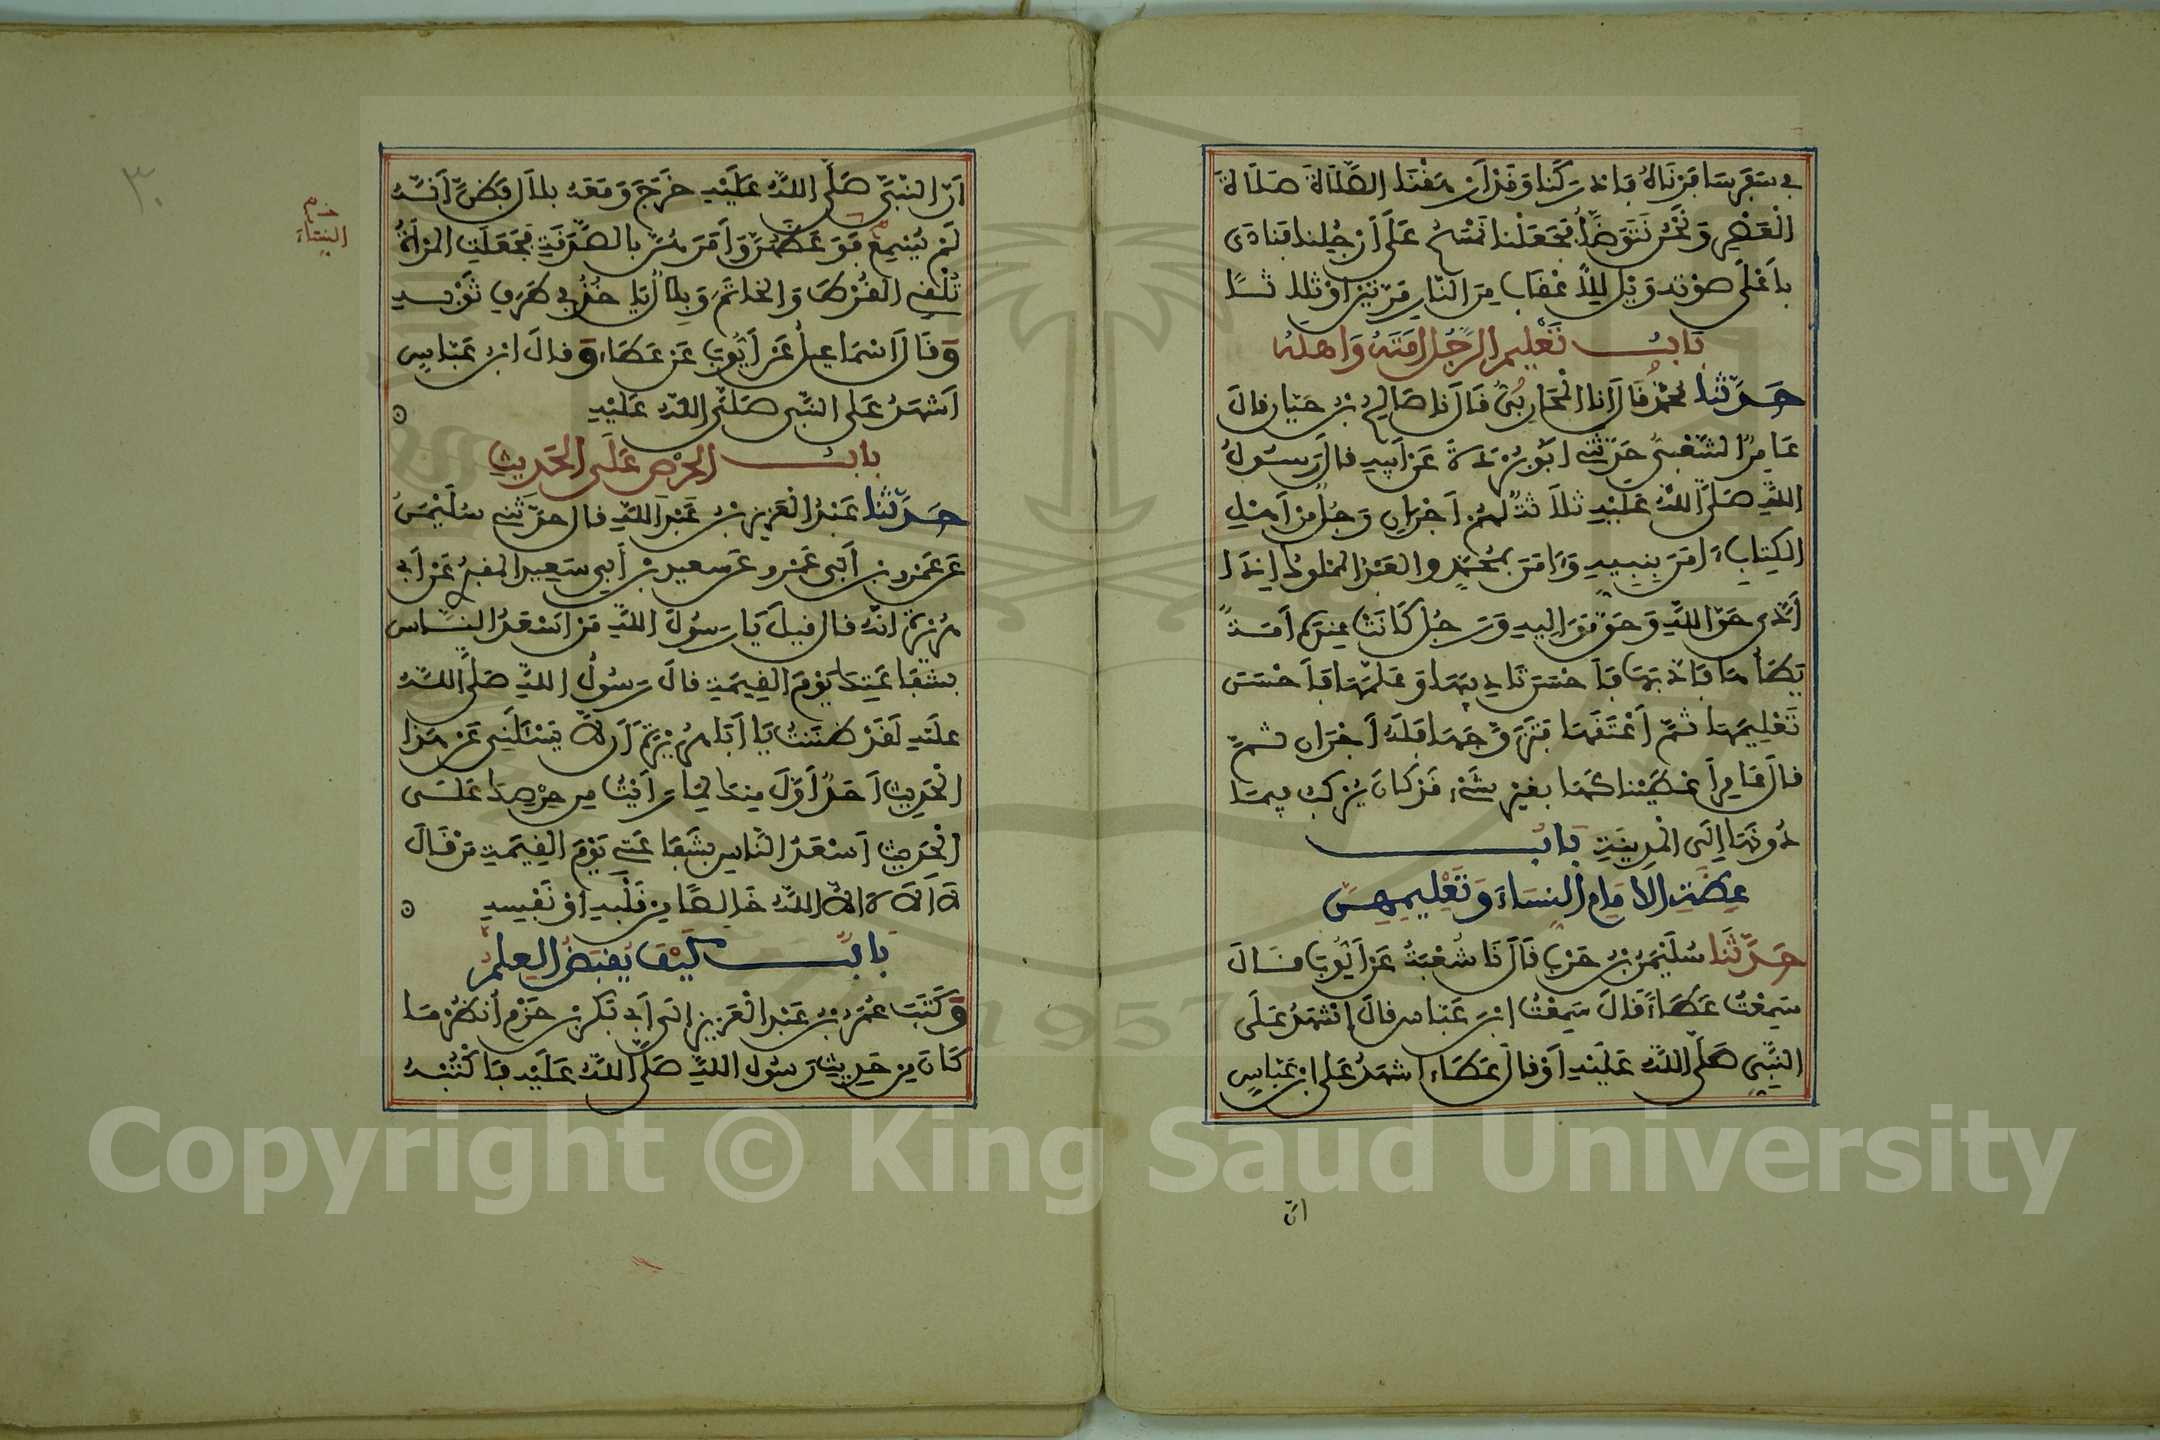 في سفر سافرناه فادركنا وقد ارهقتنا الصلاة صلاة
العصر ونحن نتوضأ فجعلنا نمسح على أرجلنا فنادى
بأعلى صوته ويل للأعقاب من النار مرتين أو ثلاثا
باب تعليم الرجل امته واهله
حدثنا محمد قال انا المحاربي قال نا صالح بن حيان قال
عامر الشعبي حدثني ابو بردة عن ابيه قال رسول
الله صلى الله عليه ثلاثة لهم اجران رجل من اهل
الكتاب ءامن بنبيه وءامن بمحمد والعبد المملوك إذا
أدى حق الله وحق مواليه ورجل كانت عنده أمة
يطأها فأدبها فأحسن تأديبها وعلمها فأحسن
تعليمها ثم أعتقها فتزوجها فله أجران ثم
قال عامر أعطيناكها بغير شيء قد كان يركب فيما
دونها إلى المدينة باب
عظة الإمام النساء وتعليمهن
حدثنا سليمن بن حرب قال نا شعبة عن أيوب قال
سمعت عطاء قال سمعت ابن عباس قال أشهد على
النبي صلى الله عليه أو قال عطاء أشهد على ابن عباس
ان
أن النبي صلى الله عليه خرج ومعه بلال فظن أنه
لم يسمع فوعظهن وأمرهن بالصدقة فجعلت المرأة
تلقي القرط والخاتم وبلال يأخذ في طرف ثوبه
وقال اسماعيل عن أيوب عن عطاء وقال ابن عباس
أشهد على النبي صلى الله عليه
باب الحرص على الحديث
حدثنا عبد العزيز بن عبد الله قال حدثني سليمن
عن عمرو بن أبي عمرو عن سعيد بن أبي سعيد المقبري عن أبي
هريرة انه قال قيل يا رسول الله من اسعد الناس
بشفاعتك يوم القيمة قال رسول الله صلى الله
عليه لقد ظننت يا أبا هريرة أن لا يسئلني عن هذا
الحديث أحد أول منك لما رأيت من حرصك على
الحديث أسعد الناس بشفاعتي يوم القيمة من قال
لا اله الا الله خالصا من قلبه أو نفسه
باب كيف يقبض العلم
وكتب عمر بن عبد العزيز إلى أبي بكر بن حزم أنظر ما
كان من حديث رسول الله صلى الله عليه فاكتبه
النساء
٣٠
Copyright © King Saud University
1957